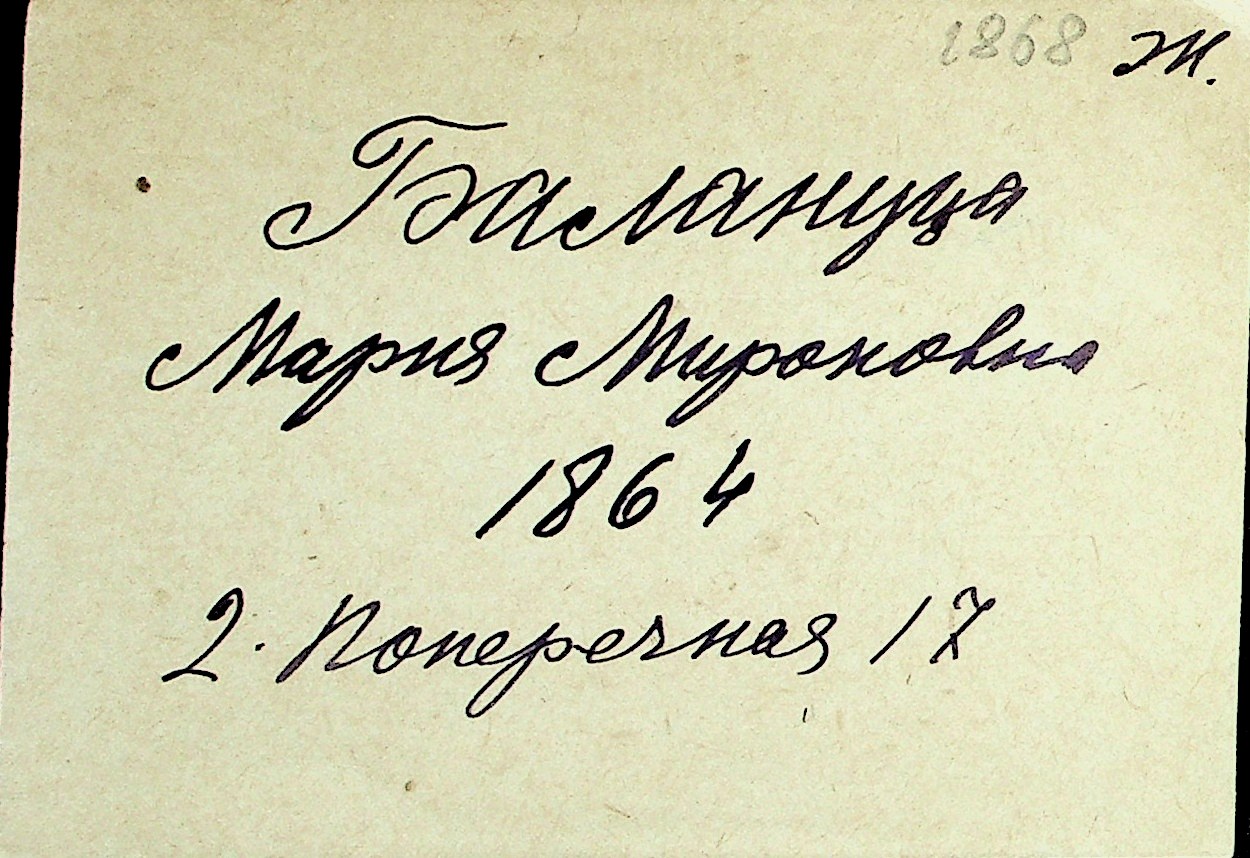 1868 Ж.
Балануца
Мария Мироновна
1864
2. Поперечная 17